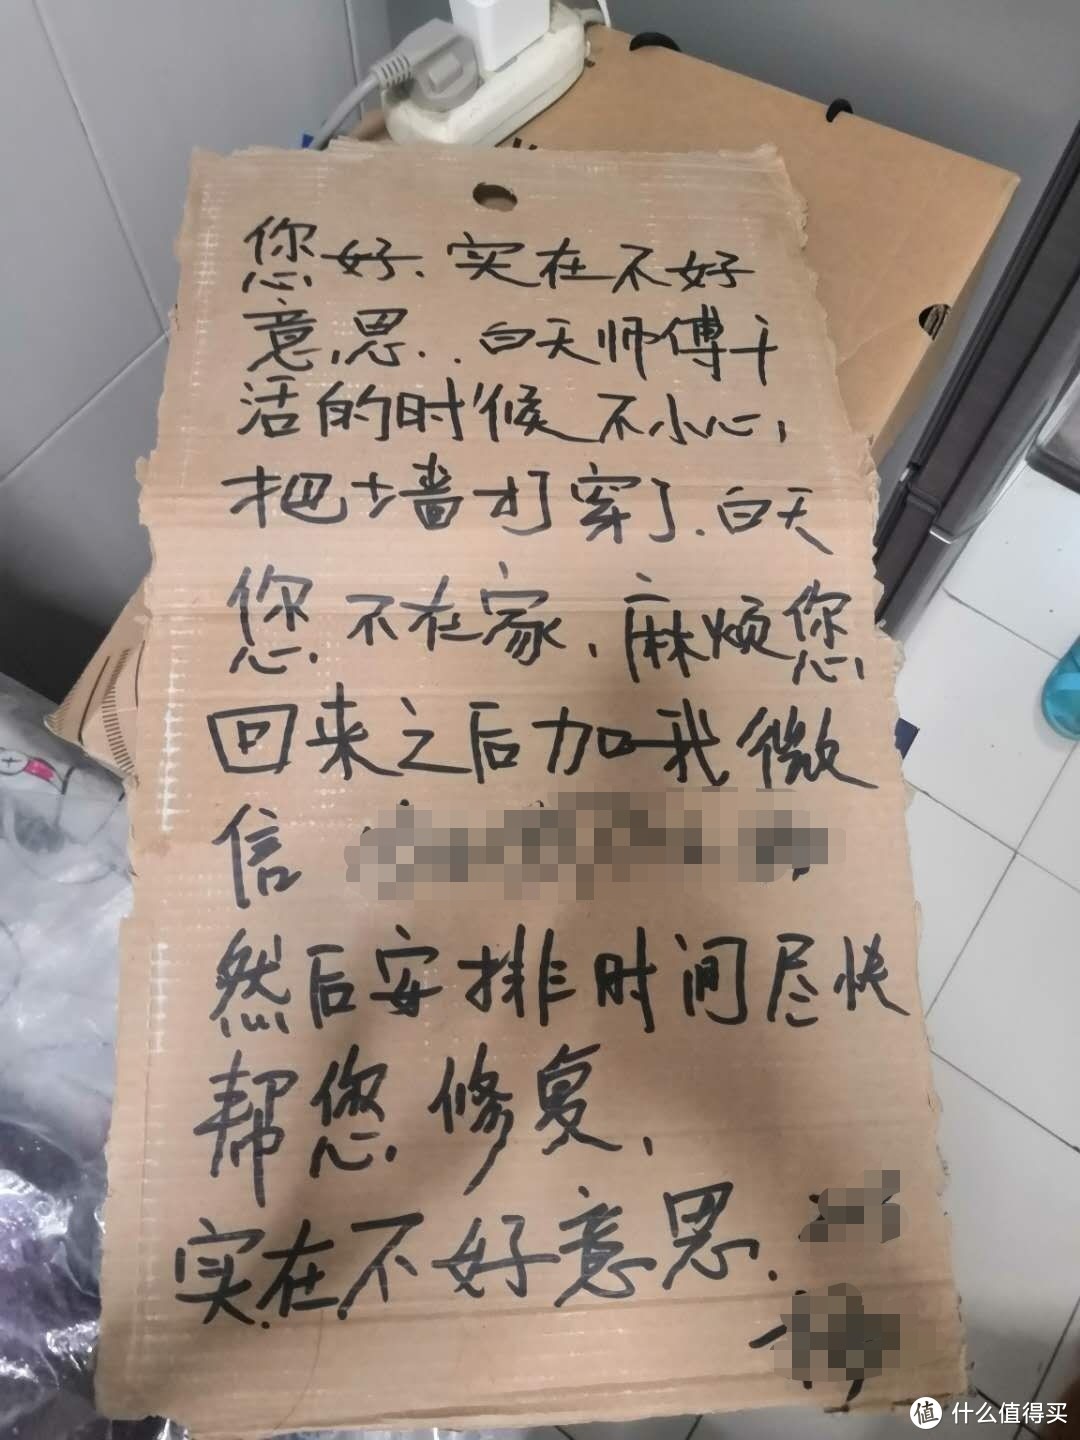 您好、实在不好
意思..白天师傅干
活的时候不小心,
把墙打穿了.白天
您.不在家、麻烦您,
回来之后加我微
信
然后安排时间尽快
帮您修复,
实在不好意思.
值 什么值得买